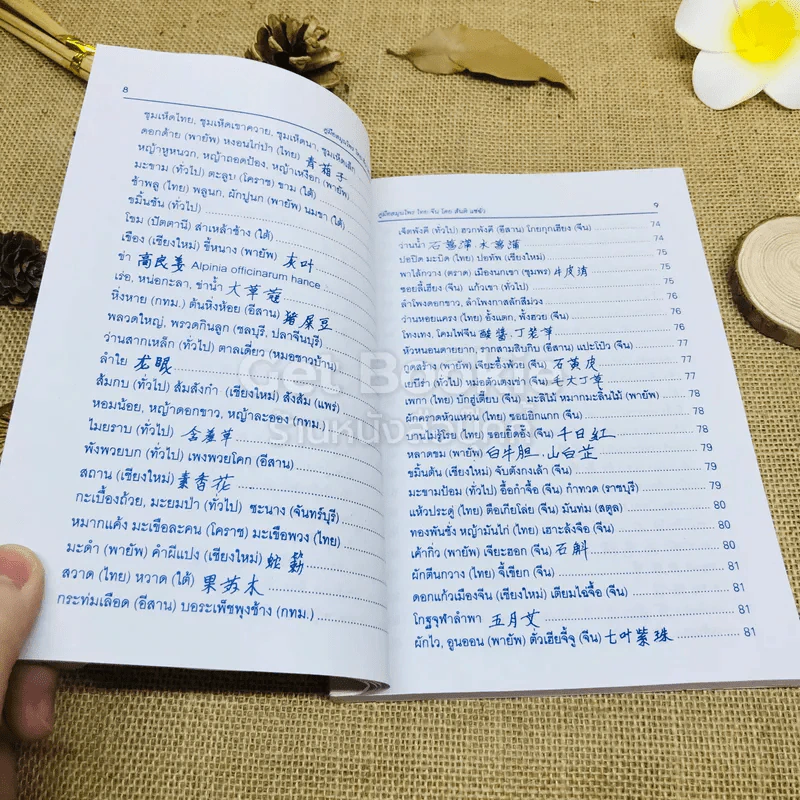 8
คู่มือสมุนไพร ไทย
ชุมเห็ดไทย, ชุมเห็ดเขาควาย, ชุมเห็ดนา, ชุมเห็ดเล็ก
ดอกด้าย (พายัพ) หงอนไก่ป่า (ไทย) 青葙子
หญ้าหูหนวก, หญ้าถอดป้อง, หญ้าเหงือก (พายัพ)
มะขาม (ทั่วไป) ตะลูบ (โคราช) ขาม (ใต้)
ช้าพลู (ไทย) พลูนก, ผักปูนก (พายัพ) นมขา (ใต้)
ขมิ้นชัน (ทั่วไป)
โขม (ปัตตานี) สำเหล้าช้าง (ใต้)
เชือง (เชียงใหม่) ขี้หนาง (พายัพ) 灰叶
ข่า 高良姜 Alpinia officinarum hance
เร่อ, หน่อกะลา, ข่าน้ำ 大草蔻
หิ่งหาย (กทม.) ต้นหิ่งห้อย (อีสาน) 猪屎豆
พลวดใหญ่, พรวดกินลูก (ชลบุรี, ปลาจีนบุรี)
ว่านสากเหล็ก (ทั่วไป) ตาลเดี่ยว (หมอชาวบ้าน)
ลำไย 龙眼
ส้มกบ (ทั่วไป) ส้มสังกำ (เชียงใหม่) สังส้ม (แพร่)
หอมน้อย, หญ้าดอกขาว, หญ้าละออง (กทม.)
ไมยราบ (ทั่วไป) 含羞草
พังพวยบก (ทั่วไป) เพงพวยโคก (อีสาน)
สถาน (เชียงใหม่) 素香花
กะเบื้องถ้วย, มะยมป่า (ทั่วไป) ชะนาง (จันทร์บุรี)
หมากแค้ง มะเขือละคน (โคราช) มะเขือพวง (ไทย)
มะดำ (พายัพ) คำผีแปง (เชียงใหม่) 蛇簕
สวาด (ไทย) หวาด (ใต้) 果苏木
กระท่มเลือด (อีสาน) บอระเพ็ชพุงช้าง (กทม.)
คู่มือสมุนไพร ไทย จีน โดย สันติ แซ่ลิ้ว 9
เจ็ดพังคี (ทั่วไป) ฮวกพังคี (อีสาน) โกยกุกเฮียง (จีน) 74
ว่านน้ำ 石菖蒲 水菖蒲 74
ปอปิด มะบิด (ไทย) ปอทัพ (เชียงใหม่) 75
พาไส้กวาง (ตราด) เมืองนกเขา (ชุมพร) 牛皮消 75
ซอยลี้เฮียง (จีน) แก้วเขา (ทั่วไป) 75
ลำโพงดอกขาว, ลำโพงกาสลักสีม่วง 76
ว่านหอยแครง (ไทย) อั้งแตก, พั้งฮวย (จีน) 76
โทงเทง, โคมไฟจีน 酸酱, 丁茏草 76
หัวหนอนตายยาก, รากสามสิบกิบ (อีสาน) แปะโป้ว (จีน) 77
กูดสร้าง (พายัพ) เจียะอึ้งพ้วย (จีน) 石黄皮 77
เขบีร่า (ทั่วไป) หม่อตัวเตงเช่า (จีน) 毛大丁草 77
เพกา (ไทย) บักฮู่เตี้ยบ (จีน) มะลิไม้ หมากมะลิ้นไม้ (พายัพ) 78
ผักคราดหัวแหวน (ไทย) ซอยอิกแกก (จีน) 78
บานไม่รู้โรย (ไทย) ซอยเยื้ออั๊ง (จีน) 千日红 78
หลาดขม (พายัพ) 白牛胆, 山白芷 79
ขมิ้นต้น (เชียงใหม่) จับตังกงเล้า (จีน) 79
มะขามป้อม (ทั่วไป) อื้อกำจื้อ (จีน) กำทวด (ราชบุรี) 79
แห้วประดู่ (ไทย) ตือเกียโล่ย (จีน) มันท่ม (สตูล) 80
ทองพันชั่ง หญ้ามันไก่ (ไทย) เฮาะลั่งจื้อ (จีน) 80
เด้ากิ่ว (พายัพ) เจียะฮอก (จีน) 石斛 80
ผักตีนกวาง (ไทย) จี้เขียก (จีน) 81
ดอกแก้วเมืองจีน (เชียงใหม่) เตียมไฉ่จื้อ (จีน) 81
โกฐจุฬาลำพา 五月艾 81
ผักไว, อูนออน (พายัพ) ตั่วเฮียจิ้จู (จีน) 七叶紫珠 81